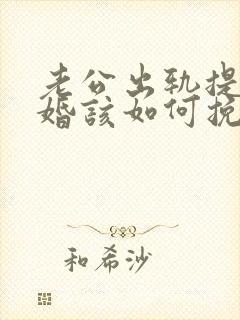 老公出轨提
婚該如何挽
和希沙